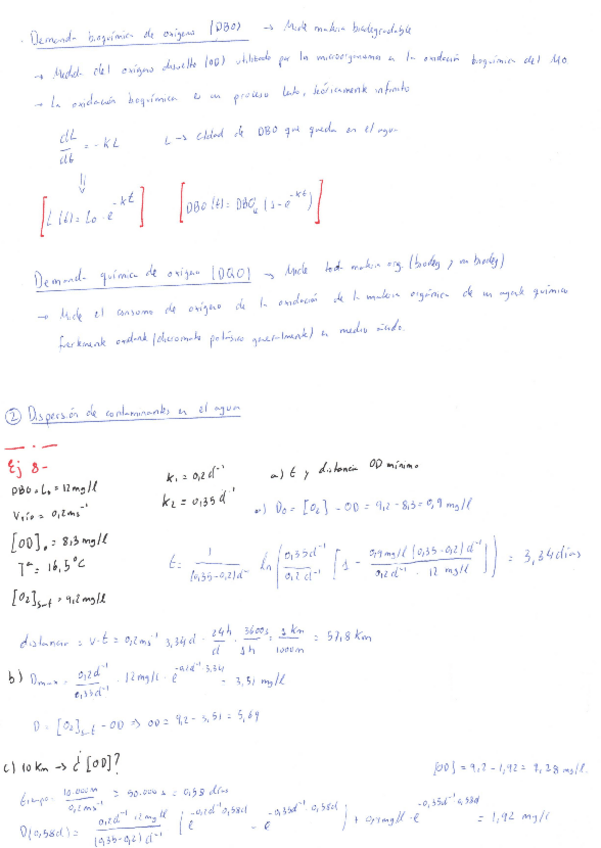 Demanda bioquímica de oxígeno (DBO) → Mide materia biodegradable
→ Medida del oxígeno disuelto (OD) utilizado por los microorganismos en la oxidación bioquímica del MO
→ La oxidación bioquímica es un proceso lento, teóricamente infinito
dL/dt = -KL L → Ctdad de DBO que queda en el agua
⇓
[L(t) = L₀ · e^-kt] [DBO(t) = DBOᵤ (1 - e^-kt)]
Demanda química de oxígeno (DQO) → Mide toda materia org. (biodeg y no biodeg)
→ Mide el consumo de oxígeno de la oxidación de la materia orgánica de un agente químico
fuertemente oxidante (dicromato potásico generalmente) en medio ácido.
② Dispersión de contaminantes en el agua
Ej 8-
DBO = L₀ = 12 mg/l K₁ = 0,2 d⁻¹ a) t y distancia OD mínimo
Vrío = 0,2 ms⁻¹ K₂ = 0,35 d⁻¹ a) D₀ = [O₂] - OD = 9,2 - 8,3 = 0,9 mg/l
[OD]₀ = 8,3 mg/l
Tª = 16,5ºC t = 1/(0,35-0,2)d⁻¹ ln(0,35d⁻¹/0,2d⁻¹ [1 - 0,9mg/l (0,35-0,2)d⁻¹/0,2d⁻¹ · 12 mg/l]) = 3,34 días
[O₂]sat = 9,2 mg/l
distancia = v·t = 0,2 ms⁻¹ 3,34 d · 24h/d · 3600s/1h · 1km/1000m = 57,8 Km
b) Dmax = 0,2d⁻¹/0,35d⁻¹ · 12 mg/l · e^-0,2d⁻¹ 3,34 = 3,51 mg/l
D = [O₂]sat - OD ⇒ OD = 9,2 - 3,51 = 5,69
c) 10 Km → ¿[OD]? [OD] = 9,2 - 1,92 = 7,28 mg/l
tiempo = 10.000m/0,2ms⁻¹ = 50.000 s = 0,58 días
D(0,58d) = 0,2d⁻¹ 12mg/l/(0,35-0,2)d⁻¹ (e^-0,2d⁻¹ 0,58d - e^-0,35d⁻¹ 0,58d) + 0,9mg/l · e^-0,35d⁻¹ 0,58d = 1,92 mg/l